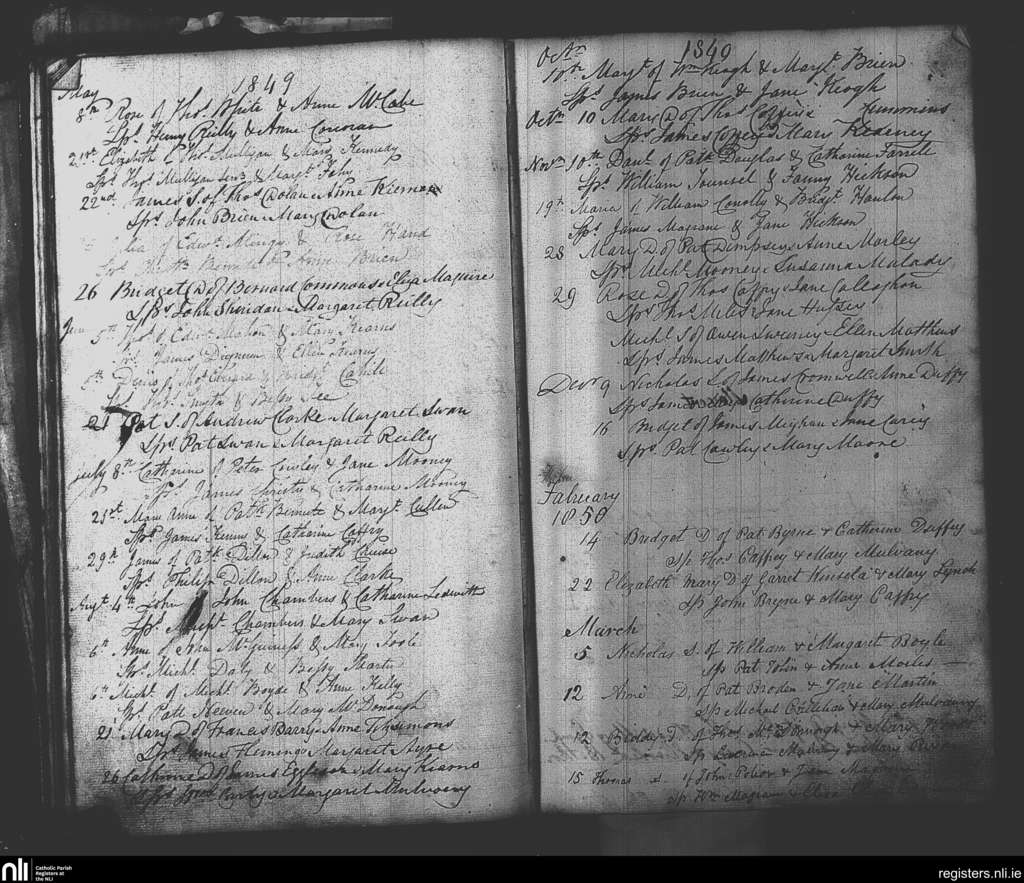 1849
May
8th Rose of Thos. White & Anne McCabe
Sps. Henry Reilly & Anne Corcoran
21st. Elizabeth of Thos. Mulligan & Mary Kennedy
Sps. Thos. Mulligan & Margt. Fahy
22nd. James S. of Thos. Dolan & Anne Kiernan
Sps. John Brien & Mary Dolan
of Edwd. & Rose Hand
& Anne Brien
26 Bridget D. of Bernard Commons & Eliza Maguire
Sps. John Sheridan & Margaret Reilly
June 5th Thos. of Edwd. Mahon & Mary Kearns
Sps. James Digneen & Ellen Kearns
Denis of Thos. & Bridgt. Cahill
Smyth & Bessy Lee
21 Pat S. of Andrew Clarke & Margaret Swan
Sps. Pat Swan & Margaret Reilly
July 8th Catharine of Peter Cowley & Jane Mooney
Sps. James & Catharine Mooney
25st. Mary Anne of Patk. Bennett & Margt. Cullen
Sps. James Kenny & Catharine Caffry
29th James of Patk. Dillon & Judith Cruise
Sps. Philip Dillon & Anne Clarke
Augt. 4th John John Chambers & Catharine Ledwith
Sps. Chambers & Mary Swan
6th Anne of John McGuiness & Mary Toole
Sps. Michl. Daly & Bessy Martin
6th Michl. of Michl. Boyde & Anne Kelly
Sps. Patk. Keeven & Mary McDonough
21 Mary D. of Francis Baerly & Anne Fitzsimons
Sps. James Fleming & Margaret Ayre
26 Catherine D. of James & Mary Kearns
Sps. & Margaret Mulvany
1849
Octr.
10th. Margt. of Wm. Keogh & Margt. Brien
Sps. James Brien & Jane Keogh
Octr. 10 Mary D. of Thos. & Cummins
Sps. James & Mary Kedeney
Novr. 10th. Danl. of Patk. Douglas & Catharine Farrell
Sps. William Tounsel & Fanny Hickson
19th Maria of William Conolly & Bridgt. Hanlon
Sps. James Magrane & Jane Hickson
28 Mary D. of Pat Dempsey & Anne Marley
Sps. Michl. Mooney & Susanna Malady
29 Rose D. of Thos. Caffry & Jane Calleghon
Sps. Thos. Miles & Jane
Michl. S. of Owen Sweeney & Ellen Matthews
Sps. James Matthews & Margaret Smith
Decr. 9 Nicholas S. of James Cromwell & Anne Duffy
Sps. James & Catherine Duffy
16 Bridget of James Meighan & Jane Carey
Sps. Pat Cawley & Mary Moone
Fabruary
1850
14 Bridget D. of Pat Byrne & Catherine Duffey
Sp. Thos. Caffey & Mary Mulvany
22 Elizabeth Mary D. of Garret Kinsela & Mary Lynch
Sp. John Bryne & Mary Caffry
March
5 Nicholas S. of William & Margaret Boyle
Sp. Pat Tobin & Anne
12 Anne D. of Pat Broden & Jane Martin
Sp. Michael & Mary Mulvany
12 Biddy D. of Thos. McDonough & Mary
Sp. & Mary
15 Thomas S. of John & Jane
Sp. Wm. Magrane &
nli
Catholic Parish
Registers at
the NLI
registers.nli.ie